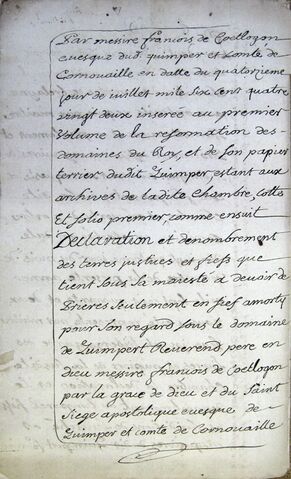 Par messire francois de Coetlogon
euesque dud. quimper et Comte de
Cornouaille en datte du quatorzieme
jour de iuillet mile six cent quatre
vingt deux inseree au premier
Volume de la reformation des
domaines du Roy, et de son papier
terrier dudit Quimper estant aux
archives de ladite Chambre, cotte
Et folio premier, comme ensuit
Declaration et denombrement
des terres justices et fiefs que
tient sous sa maiesté a devoir de
Prieres seulement en fief amorty
pour son regard sous le domaine
de Quimpert Reverend pere en
dieu messire francois de Coetlogon
par la grace de dieu et du Saint
Siege apostolique euesque de
Quimper et comte de Cornouaille